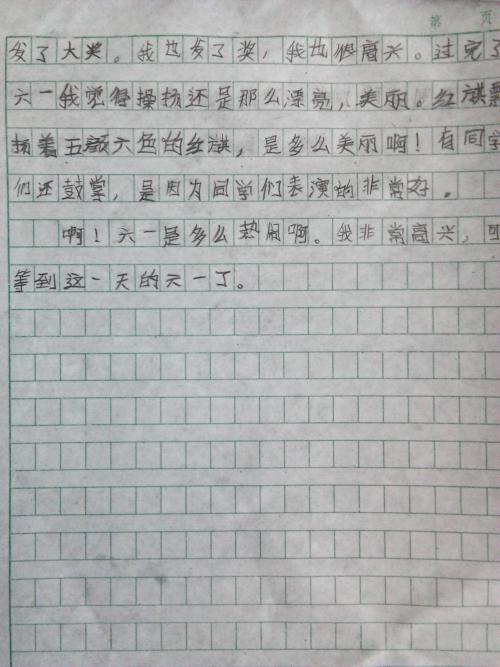 第 页
发了大奖。我也发了奖，我也很高兴。过完了
六一我觉得操扬还是那么漂亮，美丽。红旗飘
扬着五颜六色的红旗，是多么美丽啊！有同学
们还鼓掌，是因为同学们表演的非常好。
啊！六一是多么热闹啊。我非常高兴，可
等到这一天的六一了。